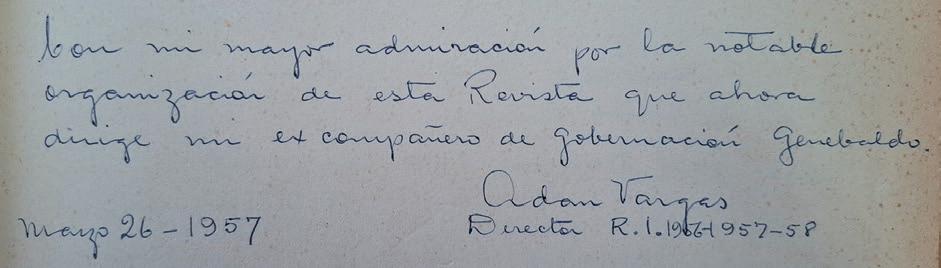 Con mi mayor admiración por la notable
organización de esta Revista que ahora
dirige mi ex compañero de Gobernación Genebaldo.
Adan Vargas
Marzo 26-1957 Director R.I. 1957-58